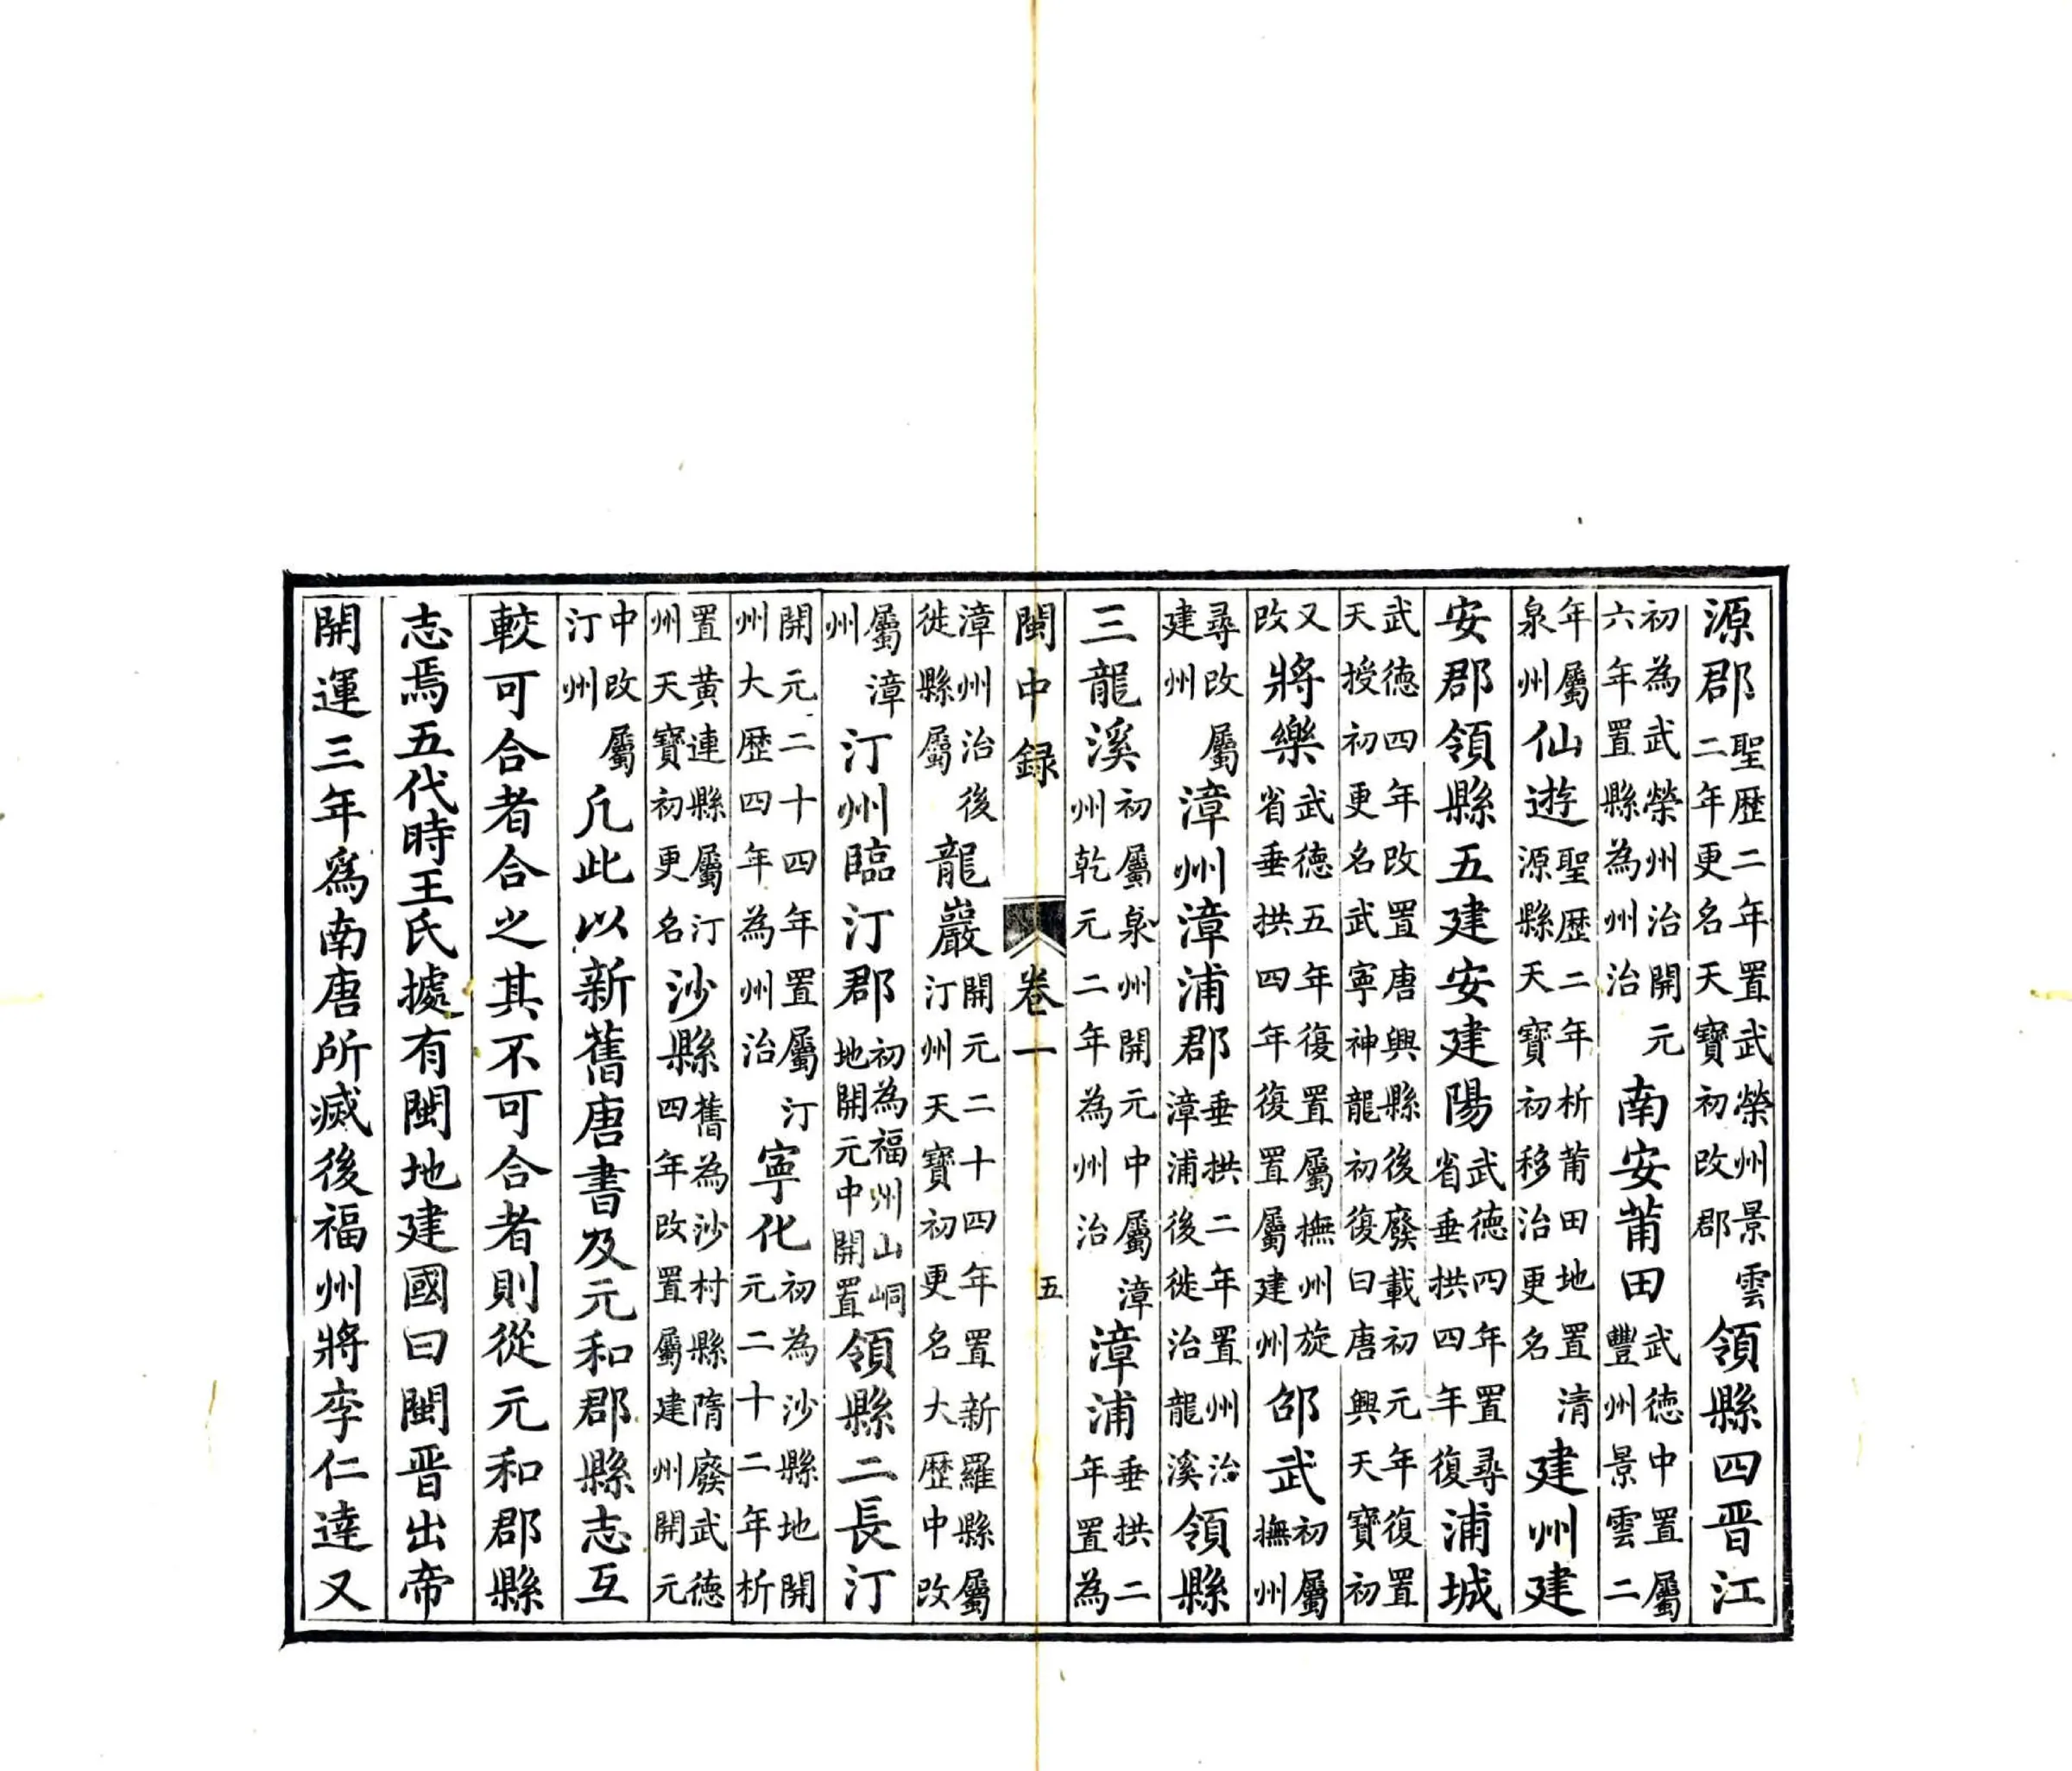 源郡聖歷二年置武榮州景雲二年更名天寶初改郡領縣四晉江
初為武榮州治開元六年置縣為州治南安莆田武德中置屬豐州景雲二
年屬泉州仙遊聖歷二年析莆田地置清源縣天寶初移治更名建州建
安郡領縣五建安建陽武德四年置尋省垂拱四年復浦城
武德四年改置唐興縣後廢載初元年復置天授初更名武寧神龍初復曰唐興天寶初
又改將樂武德五年復置屬撫州旋省垂拱四年復置屬建州邵武初屬撫州
尋改屬建州漳州漳浦郡垂拱二年置州治漳浦後徙治龍溪領縣
三龍溪初屬泉州開元中屬漳州乾元二年為州治漳浦垂拱二年置為
閩中録 卷一 五
漳州治後徙縣屬龍巖開元二十四年置新羅縣屬汀州天寶初更名大歷中改
屬漳州汀州臨汀郡初為福州山峒地開元中開置領縣二長汀
開元二十四年置屬汀州大歷四年為州治寧化初為沙縣地開元二十二年析
置黃連縣屬汀州天寶初更名沙縣舊為沙村縣隋廢武德四年改置屬建州開元
中改屬汀州凡此以新舊唐書及元和郡縣志互
較可合者合之其不可合者則從元和郡縣
志焉五代時王氏據有閩地建國曰閩晉出帝
開運三年爲南唐所滅後福州將李仁達又